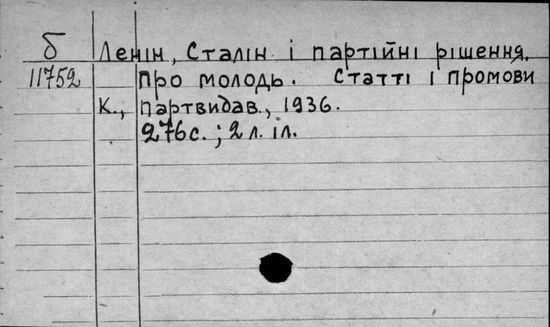 б Ленін, Сталін і партійні рішення.
11752 про молодь. Статті і промови
К., Партвидав., 1936.
276с.; 2 л. іл.